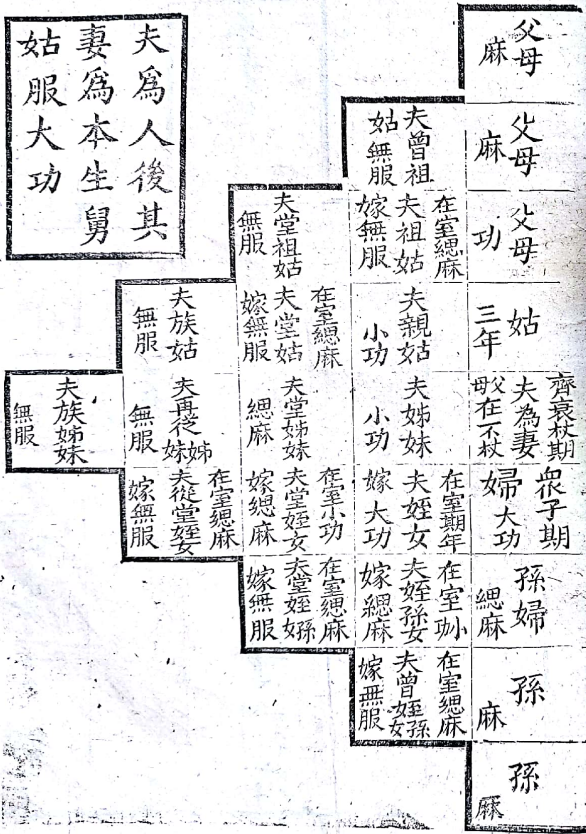 父母
麻
父母
麻
父母
功
姑
三年
齊衰杖期
夫為妻
父母在不杖
眾子期
婦大功
孫婦
緦麻
孫
麻
孫
麻
夫曾祖
姑無服
在室緦麻
夫祖姑
嫁無服
夫親姑
小功
夫姊妹
小功
在室期年
夫姪女
嫁大功
在室小功
夫姪孫女
嫁緦麻
在室緦麻
夫曾姪孫女
嫁無服
夫堂祖姑
無服
在室緦麻
夫堂姑
嫁無服
夫堂姊妹
緦麻
在室小功
夫堂姪女
嫁緦麻
在室緦麻
夫堂姪孫女
嫁無服
夫族姑
無服
夫再從姊妹
無服
在室緦麻
夫從堂姪女
嫁無服
夫族姊妹
無服
夫爲人後其
妻爲本生舅
姑服大功